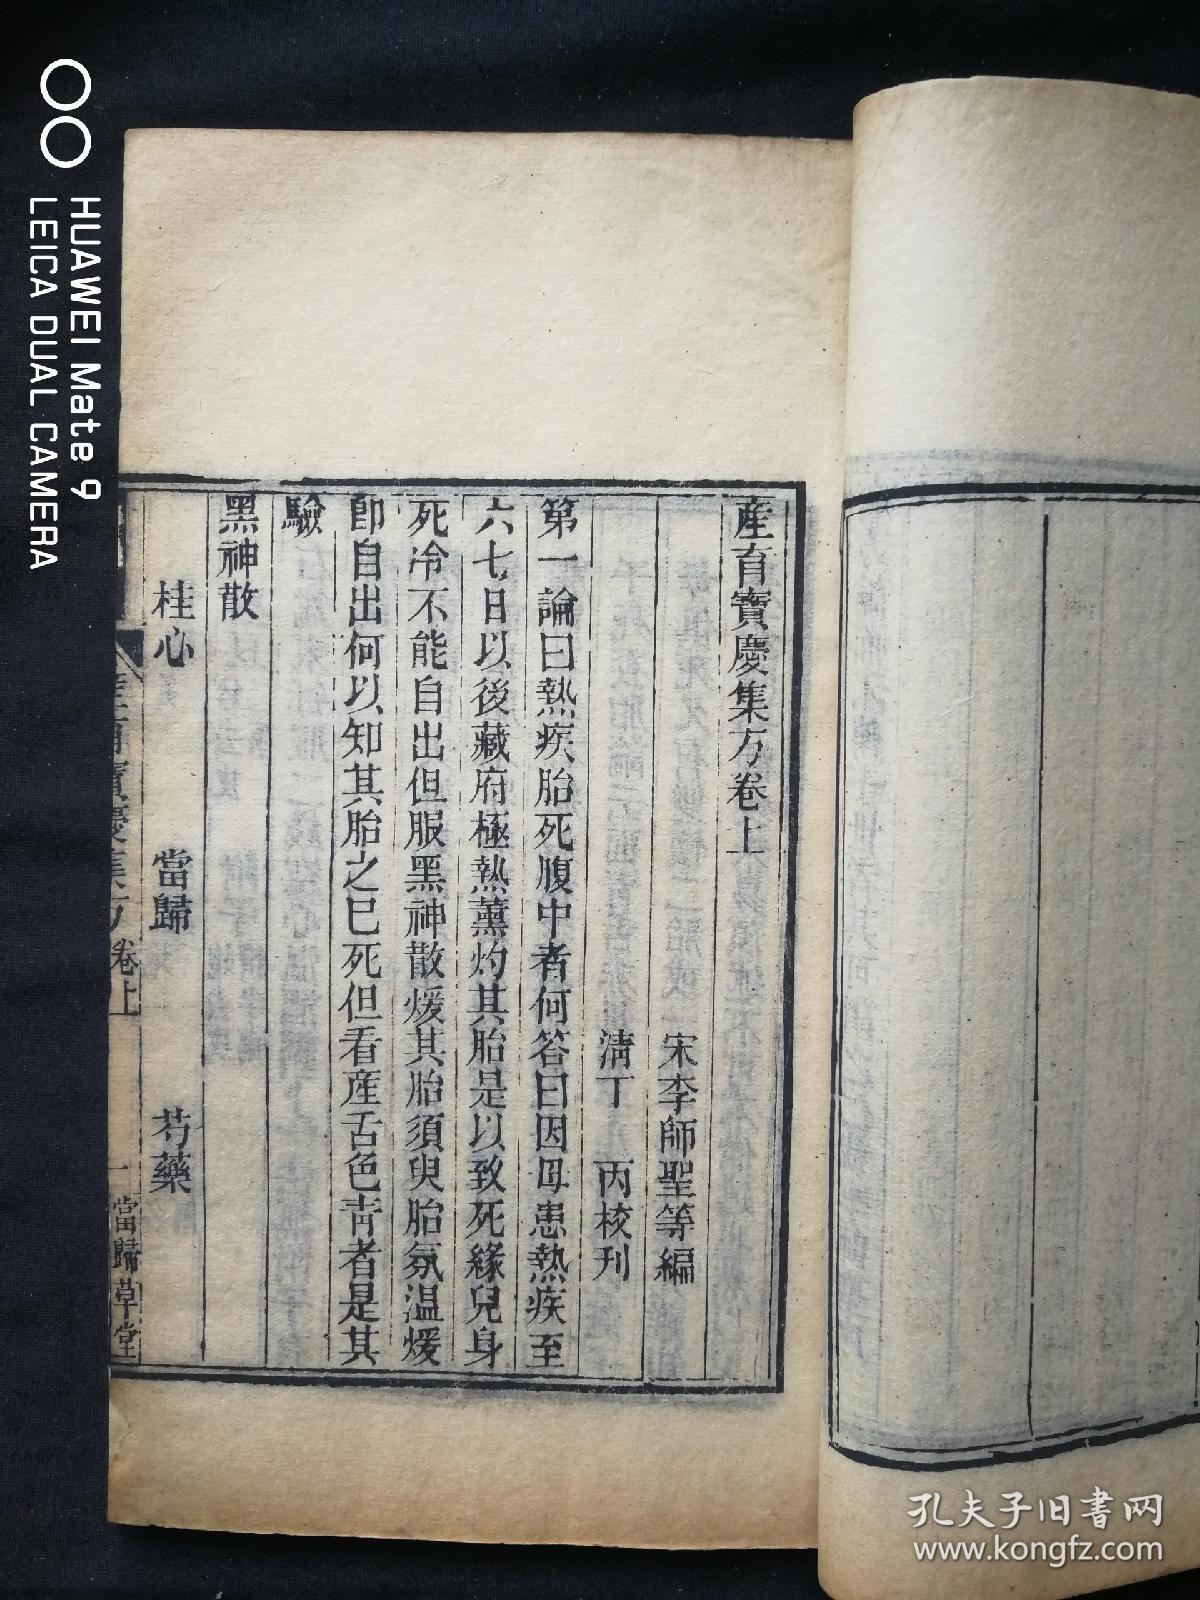 產育寶慶集方卷上
宋李師聖等編
淸丁 丙校刊
第一論曰熱疾胎死腹中者何答曰因母患熱疾至
六七日以後藏府極熱薰灼其胎是以致死緣兒身
死冷不能自出但服黑神散煖其胎須臾胎氛温煖
卽自出何以知其胎之已死但看產舌色靑者是其
驗
黑神散
桂心 當歸 芍藥
產育寶慶集方 卷上 一 當歸草堂
HUAWEI Mate 9
LEICA DUAL CAMERA
孔夫子旧书网
www.kongfz.com